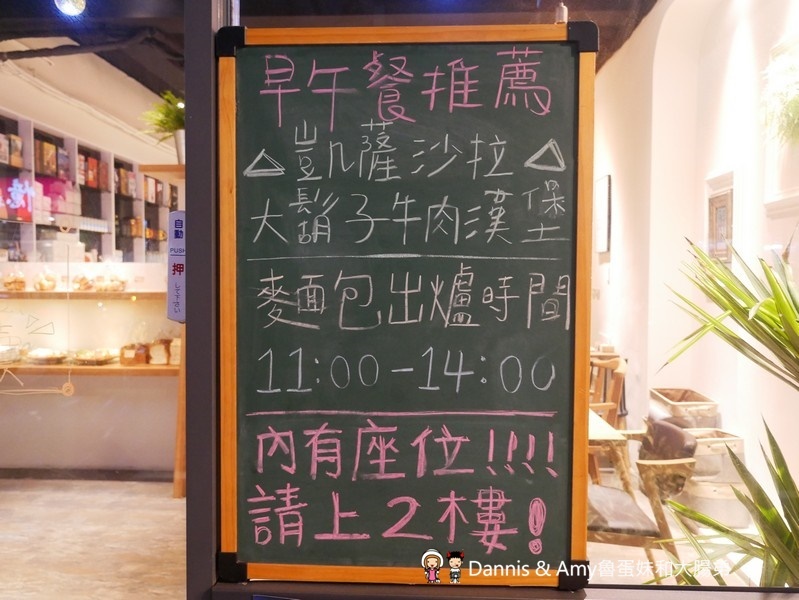 早午餐推薦
△凱薩沙拉△
大鬍子牛肉漢堡
麵包出爐時間
11:00-14:00
內有座位!!!!
請上2樓!
自動
PUSH
押
して下さい
Dannis & Amy魯蛋妹和大腸弟